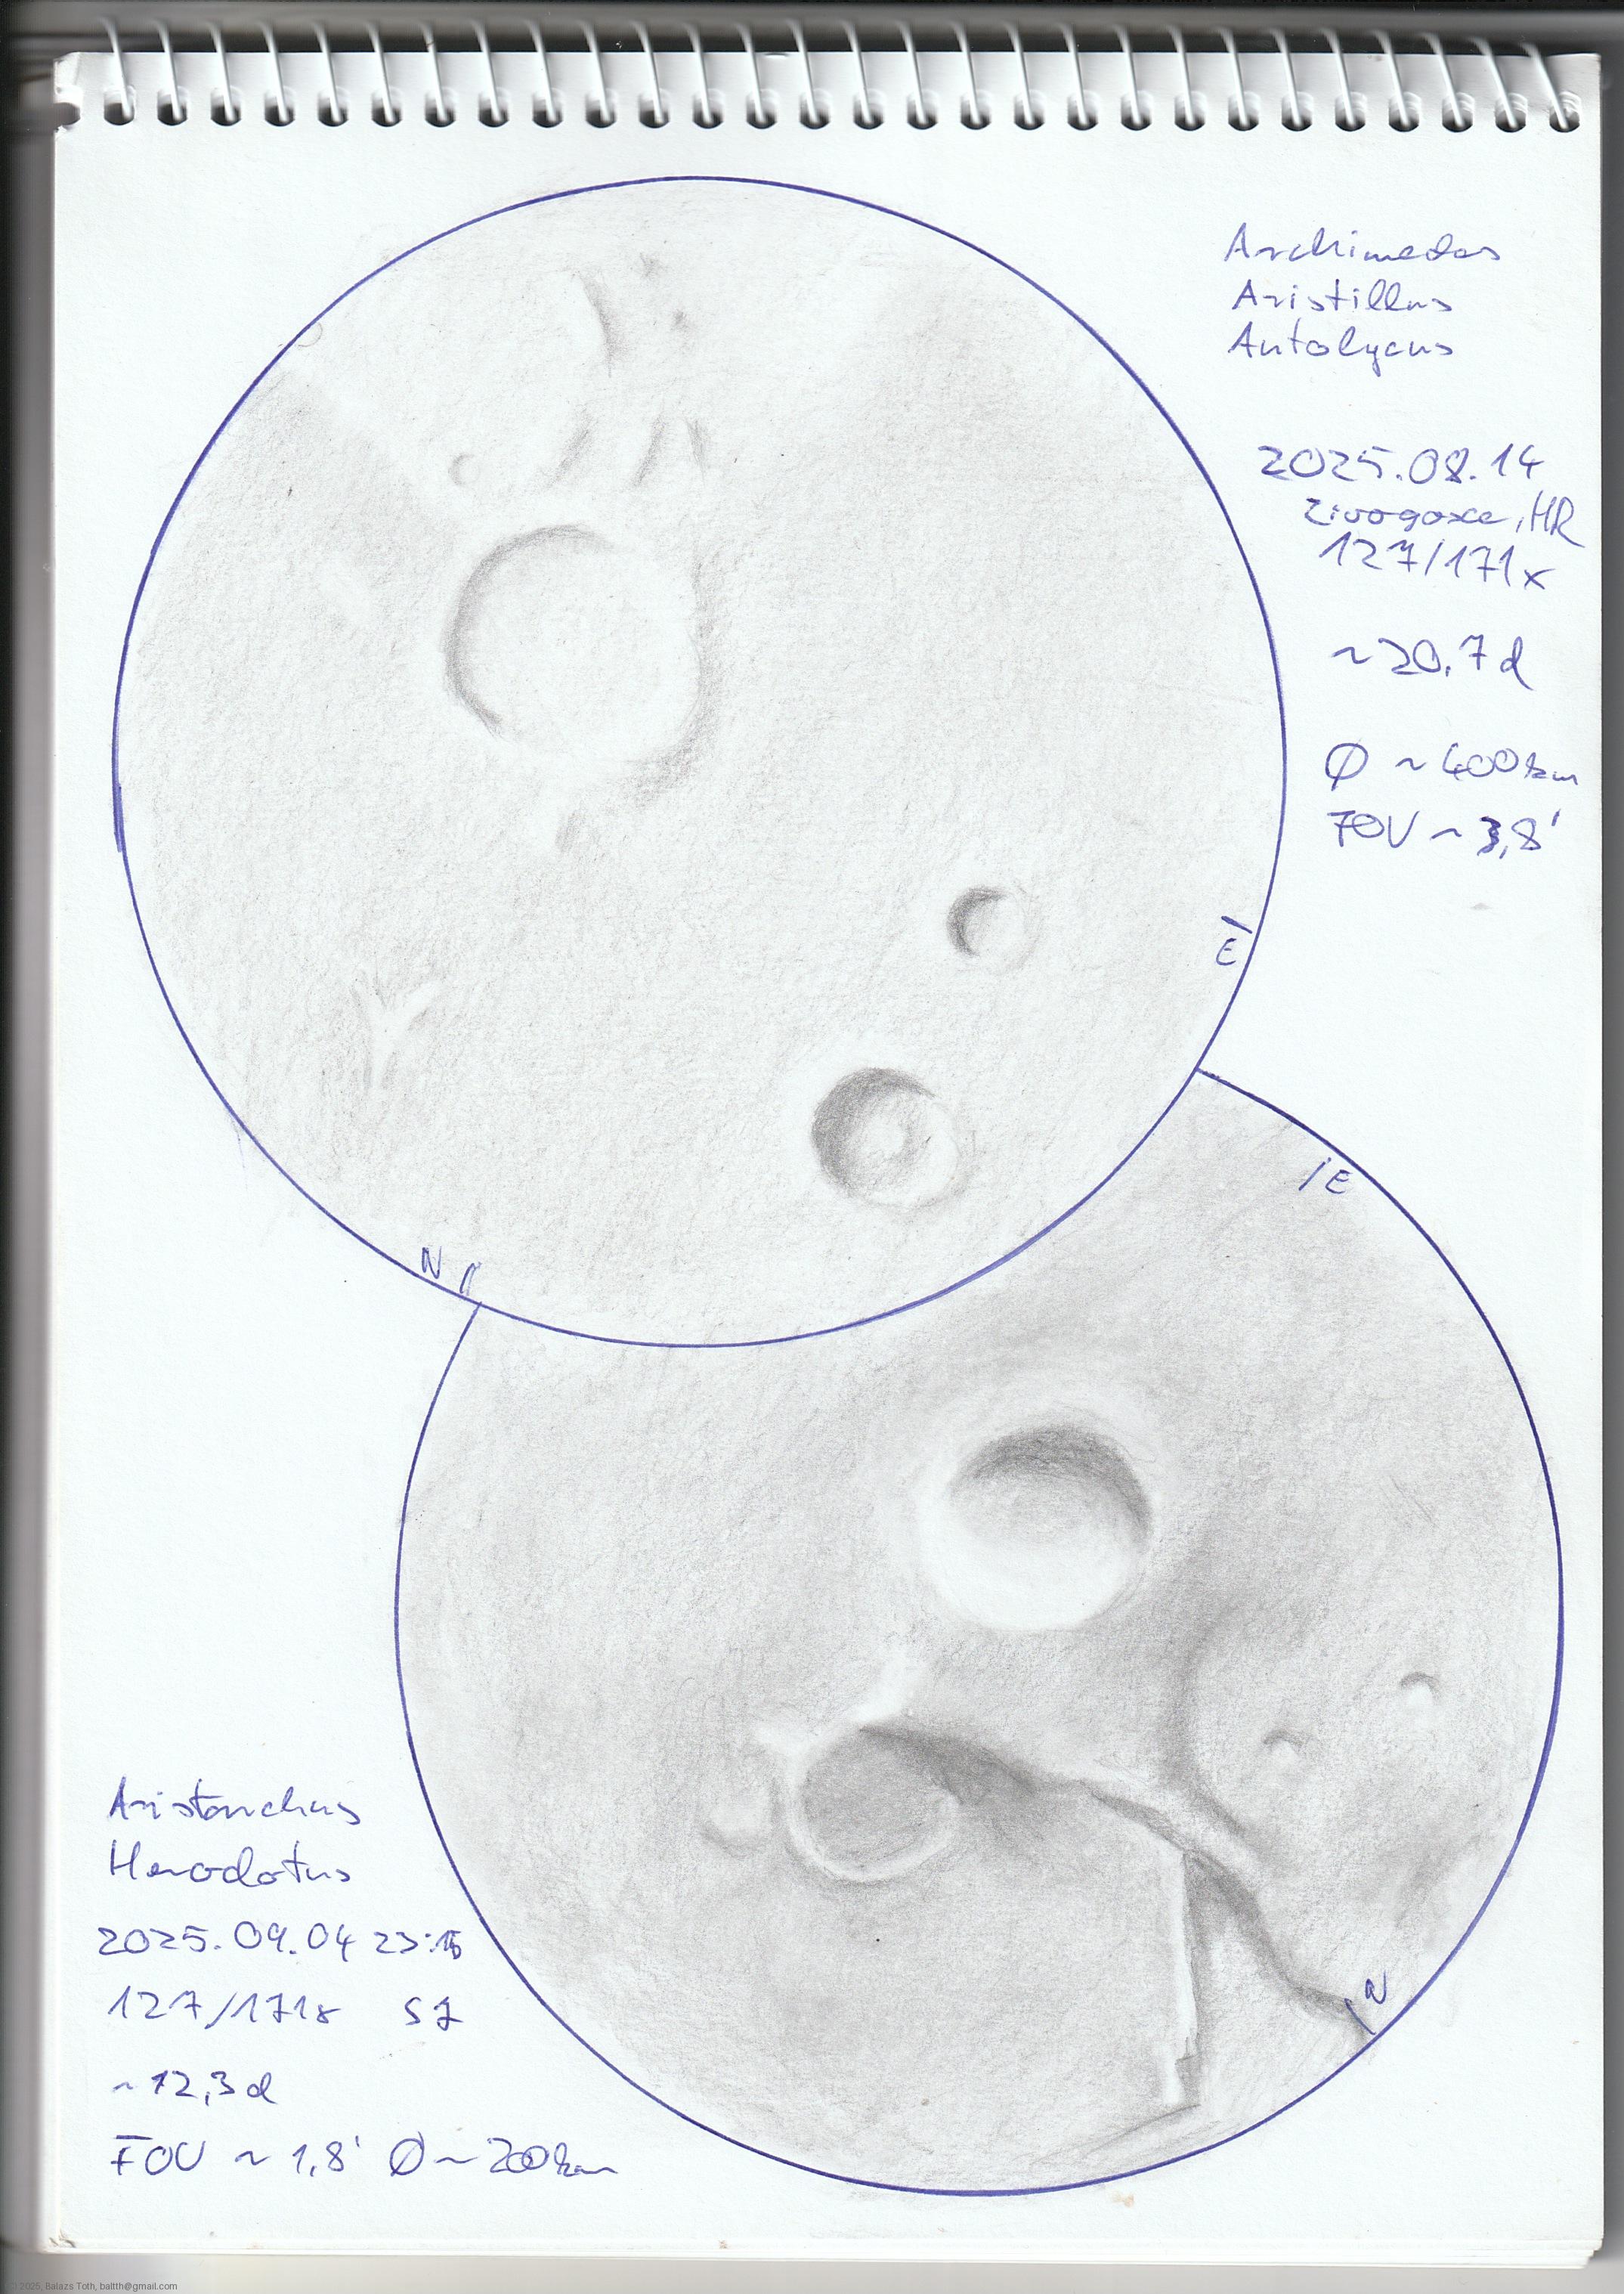 Archimedes
Aristillus
Autolycus
2025.08.14
Zivogosce, HR
127/171x
~20,7d
Ø ~400km
FOV ~3,8'
E
N
E
N
Aristarchus
Herodotus
2025.09.04 23:15
127/171x S7
~12,3d
FOV ~1,8' Ø~200km
© 2025, Balazs Toth, baltth@gmail.com